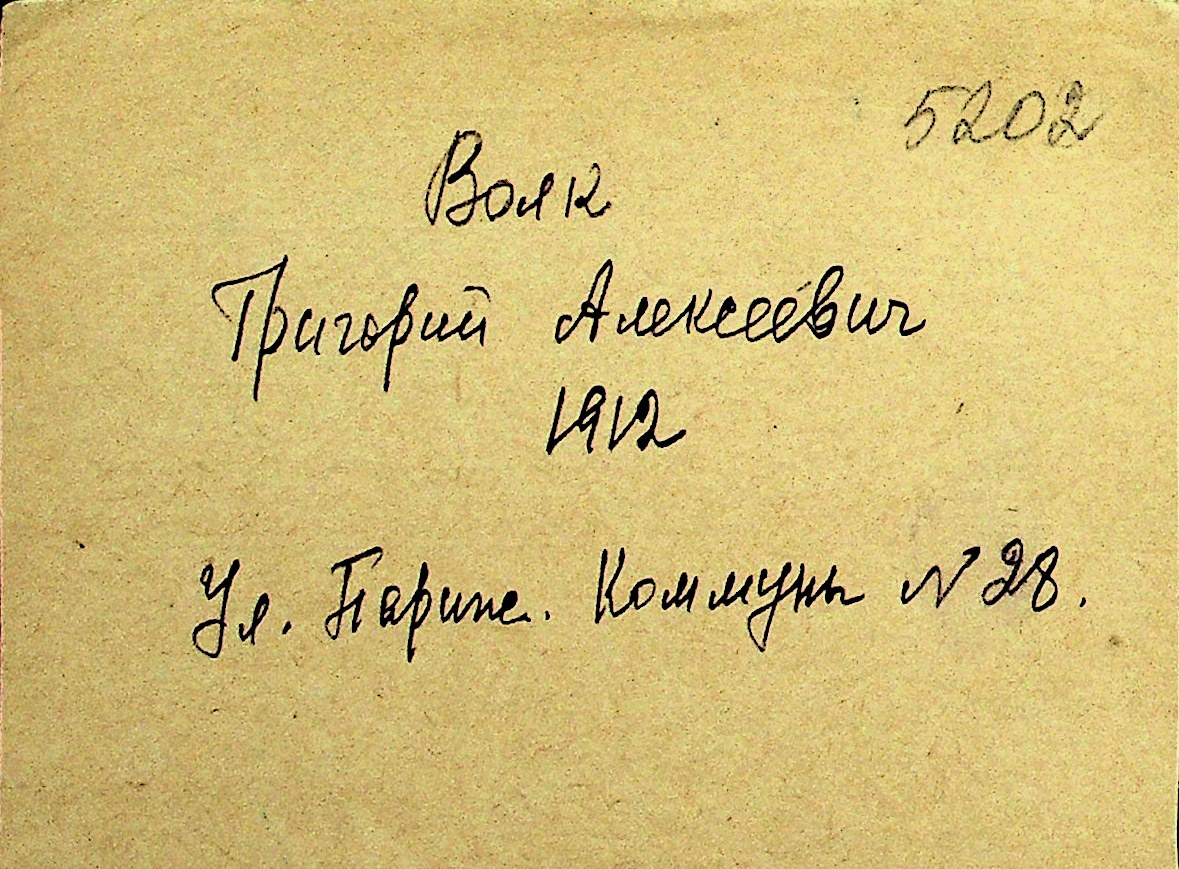 5202
Вояк
Григорий Алексеевич
1912
Ул. Париж. Коммуны № 28.